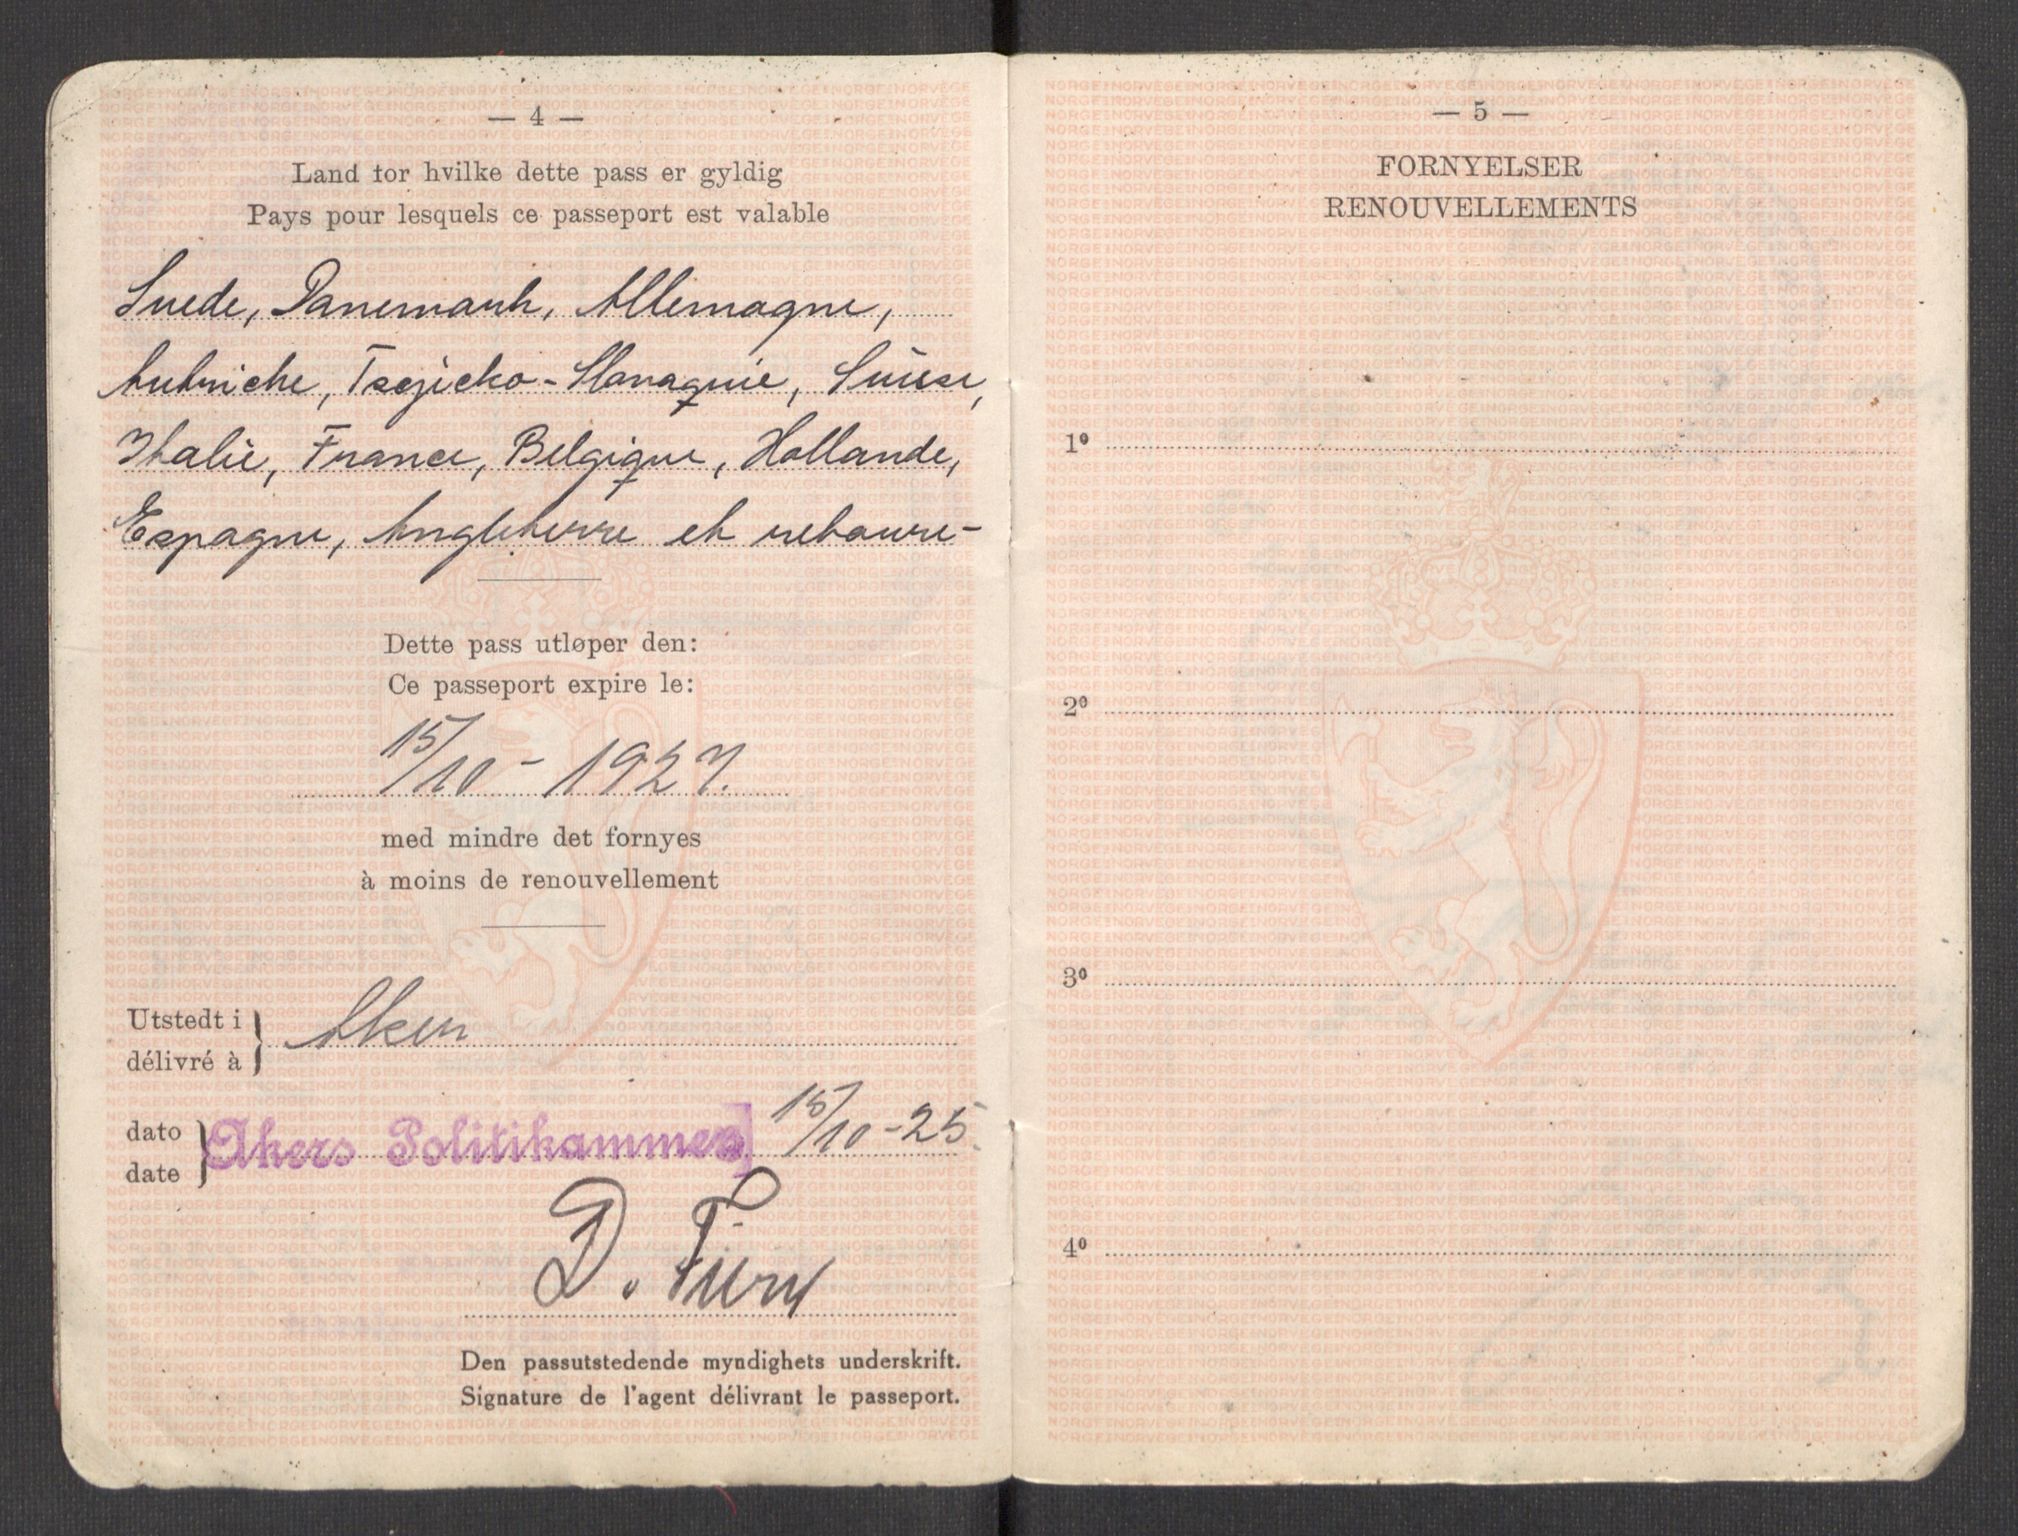 — 4 —
Land for hvilke dette pass er gyldig
Pays pour lesquels ce passeport est valable
Suede, Danemark, Allemagne,
Autriche, Tsejecko-Slovaquie, Suisse,
Italie, France, Belgique, Hollande,
Espagne, Angleterre et retour-
Dette pass utløper den:
Ce passeport expire le:
15/10-1927.
med mindre det fornyes
à moins de renouvellement
Utstedt i
délivré à
Aker
dato
date
Akers Politikammer 15/10-25.
D.
Den passutstedende myndighets underskrift.
Signature de l'agent délivrant le passeport.
— 5 —
FORNYELSER
RENOUVELLEMENTS
1º
2º
3º
4º